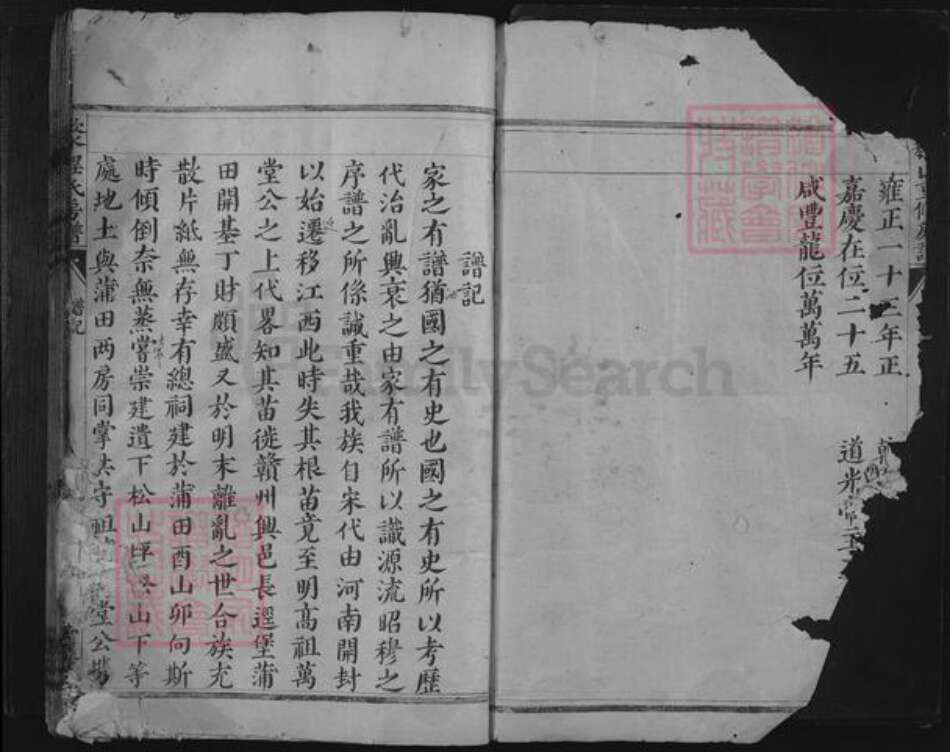 雍正一十三年正
嘉慶在位二十五 道光
咸豐龍位萬萬年
譜記
家之有譜猶國之有史也國之有史所以考歷
代治亂興衰之由家有譜所以識源流昭穆之
序譜之所係誠重哉我族自宋代由河南開封
以始遷移江西此時失其根苗竟至明高祖萬
堂公之上代畧知其苗徙贛州興邑長逕堡蒲
田開基丁財頗盛又於明末離亂之世合族充
散片紙無存幸有總祠建於蒲田酉山卯向斯
時傾倒奈無蒸嘗崇建遺下松山 山下等
處地土與蒲田兩房同掌共守祖 堂公
氏房譜 譜記
FamilySearch